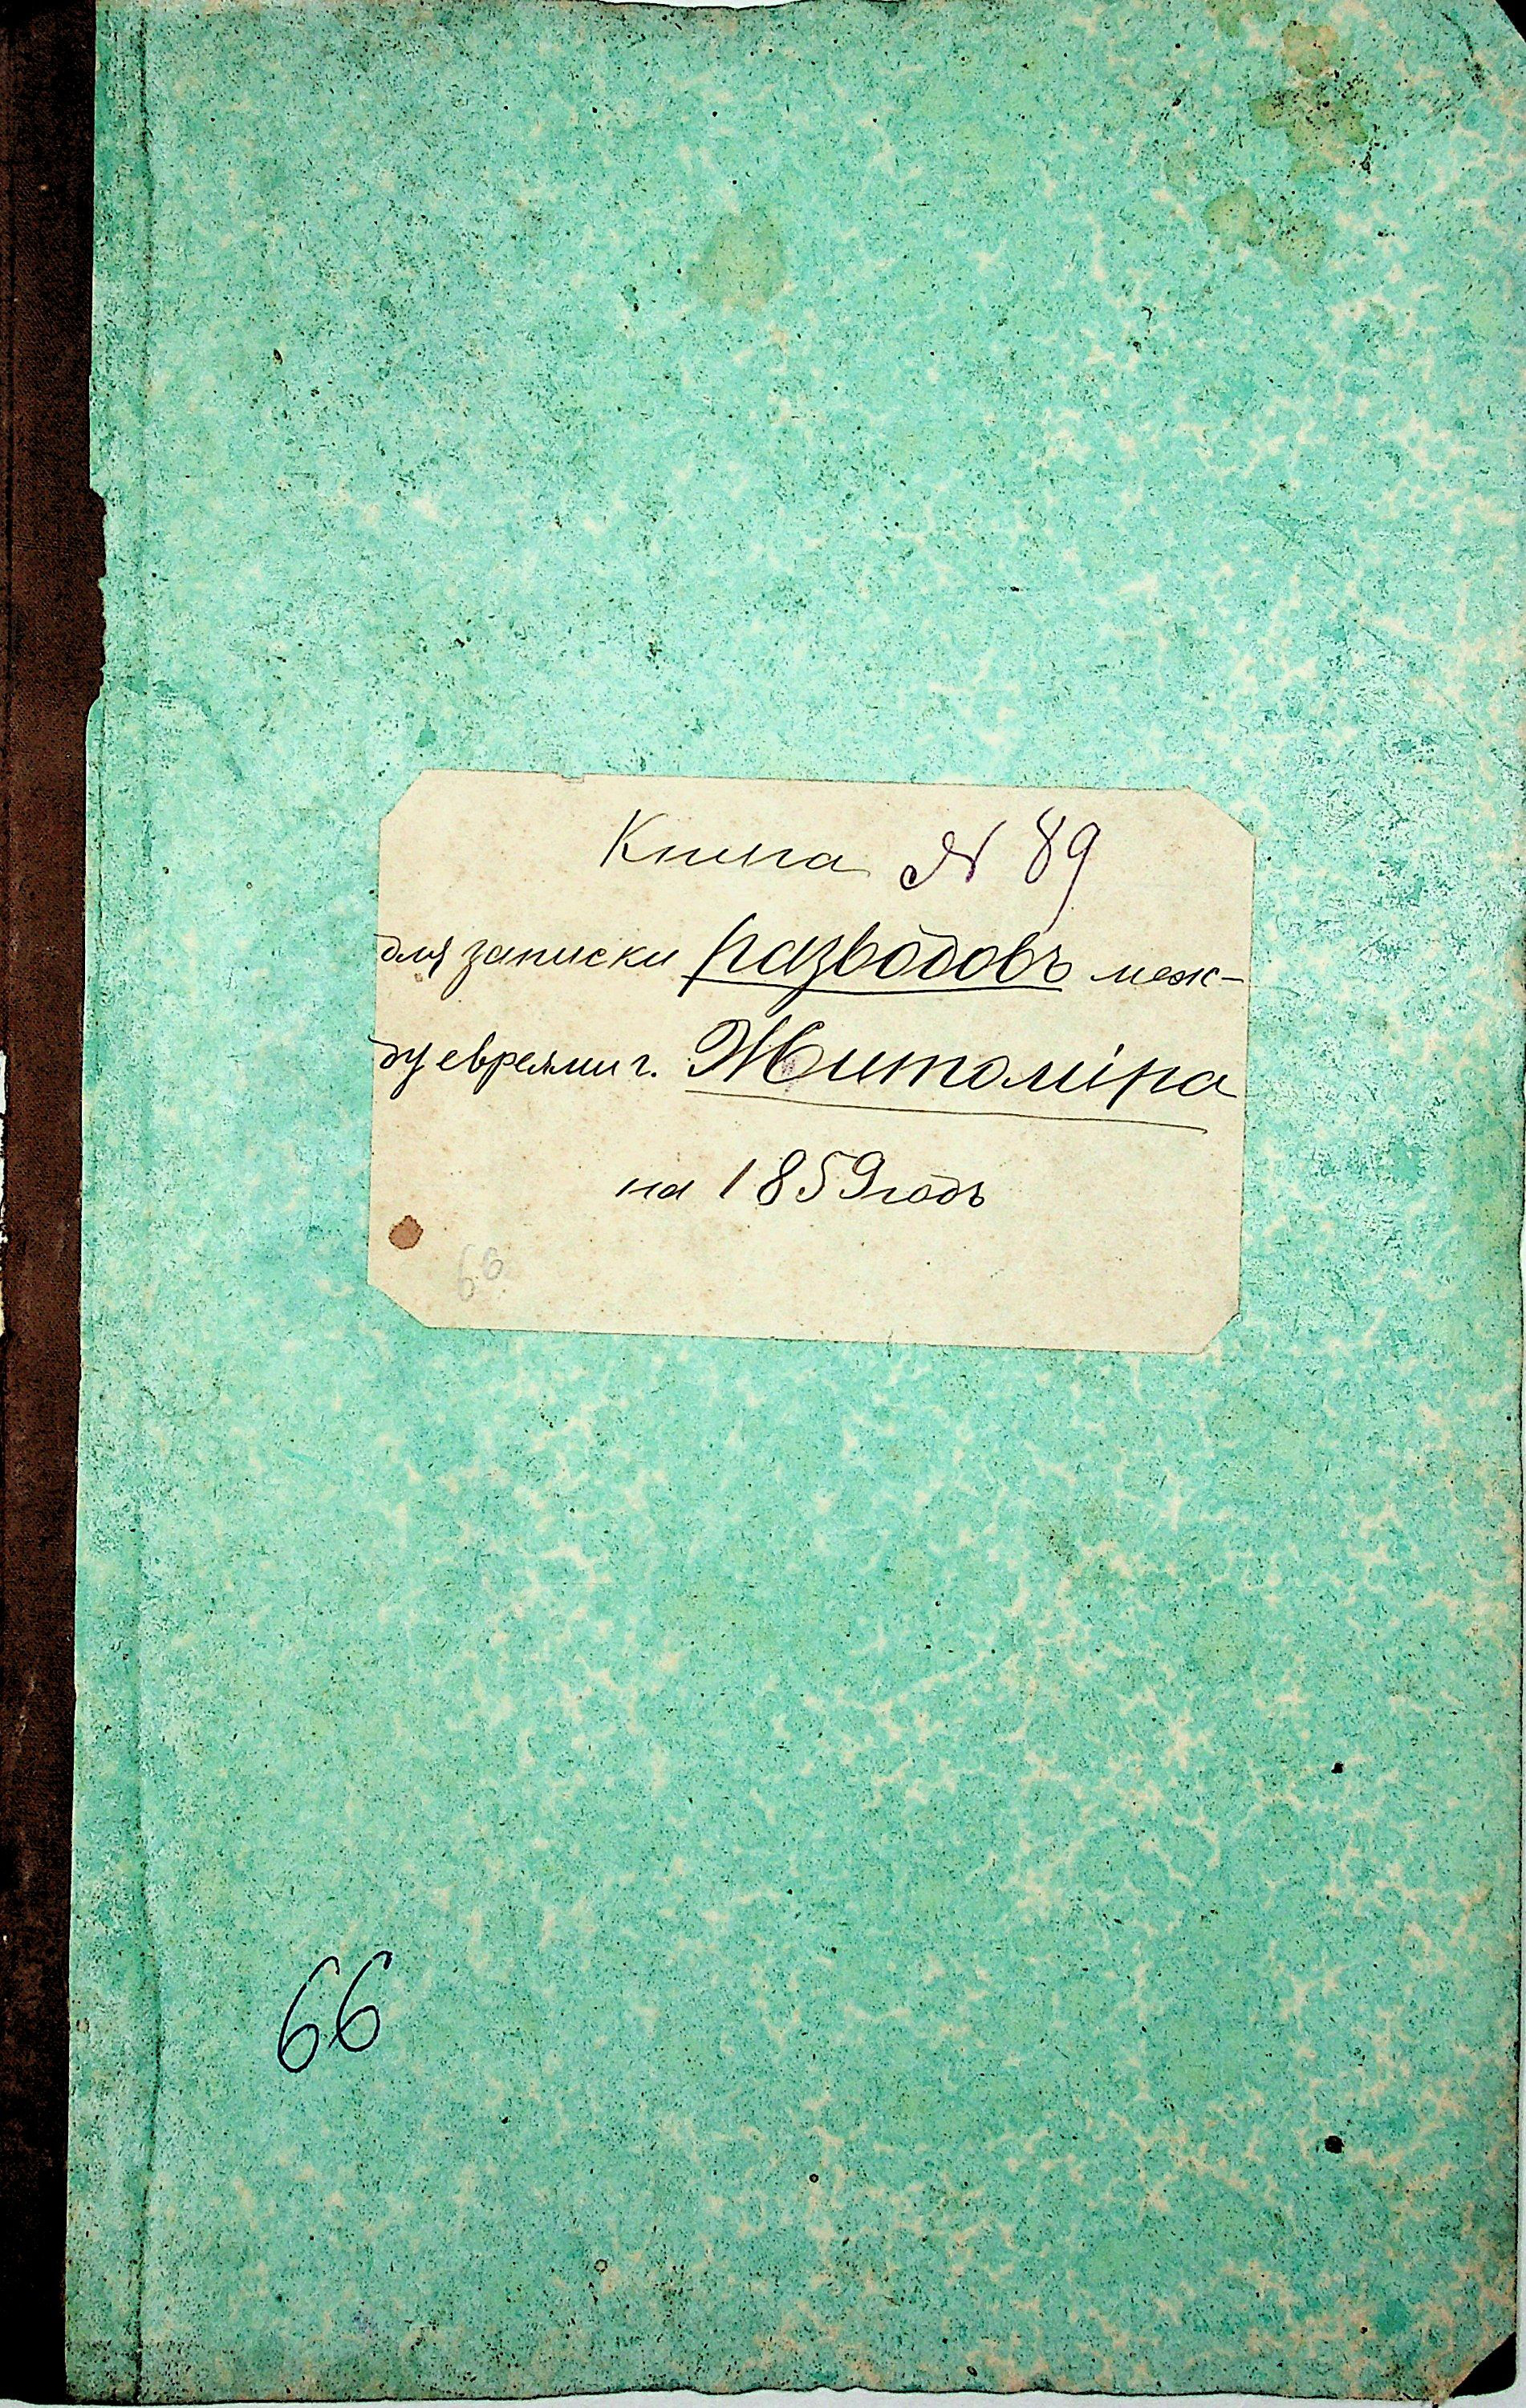 Книга № 89
для записки разводовъ меж-
ду евреями г. Житоміра
на 1859 годъ
66
66